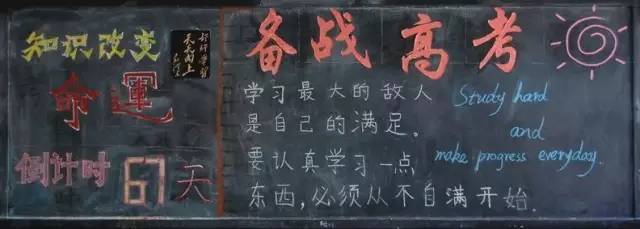 知识改变
命運
倒计时 67 天
好好学習
天天向上
备战高考
学习最大的敌人
是自己的满足。
要认真学习一点
东西,必须从不自满开始.
Study hard
and
make progress everyday.